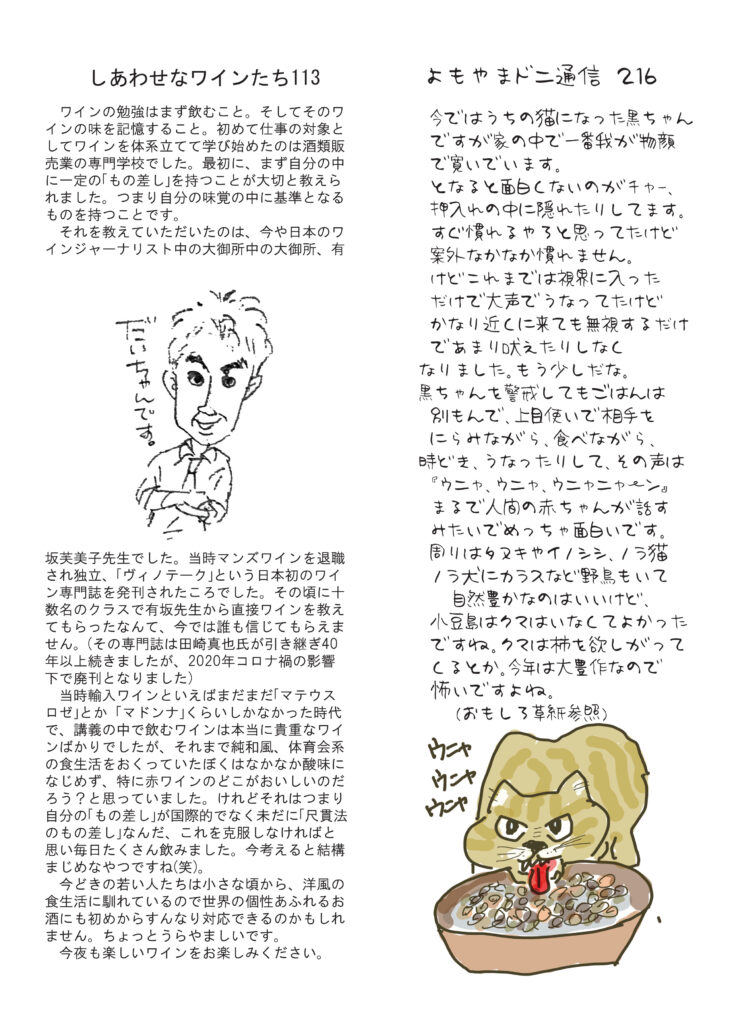 しあわせなワインたち113
　ワインの勉強はまず飲むこと。そしてそのワ
インの味を記憶すること。初めて仕事の対象と
してワインを体系立てて学び始めたのは酒類販
売業の専門学校でした。最初に、まず自分の中
に一定の｢もの差し｣を持つことが大切と教えら
れました。つまり自分の味覚の中に基準となる
ものを持つことです。
　それを教えていただいたのは、今や日本のワ
インジャーナリスト中の大御所中の大御所、有
だいちゃんです。
坂芙美子先生でした。当時マンズワインを退職
され独立、｢ヴィノテーク｣という日本初のワイ
ン専門誌を発刊されたころでした。その頃に十
数名のクラスで有坂先生から直接ワインを教え
てもらったなんて、今では誰も信じてもらえま
せん。(その専門誌は田崎真也氏が引き継ぎ40
年以上続きましたが、2020年コロナ禍の影響
下で廃刊となりました)
　当時輸入ワインといえばまだまだ｢マテウス
ロゼ｣とか「マドンナ｣くらいしかなかった時代
で、講義の中で飲むワインは本当に貴重なワイ
ンばかりでしたが、それまで純和風、体育会系
の食生活をおくっていたぼくはなかなか酸味に
なじめず、特に赤ワインのどこがおいしいのだ
ろう？と思っていました。けれどそれはつまり
自分の｢もの差し｣が国際的でなく未だに｢尺貫法
のもの差し｣なんだ、これを克服しなければと
思い毎日たくさん飲みました。今考えると結構
まじめなやつですね(笑)。
　今どきの若い人たちは小さな頃から、洋風の
食生活に馴れているので世界の個性あふれるお
酒にも初めからすんなり対応できるのかもしれ
ません。ちょっとうらやましいです。
　今夜も楽しいワインをお楽しみください。
よもやまドニ通信 216
今ではうちの猫になった黒ちゃん
ですが家の中で一番我が物顔
で寛いでいます。
となると面白くないのがチャー、
押入れの中に隠れたりしてます。
すぐ慣れるやろと思ってたけど
案外なかなか慣れません。
けどこれまでは視界に入った
だけで大声でうなってたけど
かなり近くに来ても無視するだけ
であまり吠えたりしなく
なりました。もう少しだな。
黒ちゃんを警戒してもごはんは
別もんで、上目使いで相手を
にらみながら、食べながら、
時どき、うなったりして、その声は
『ウニャ、ウニャ、ウニャニャーン』
まるで人間の赤ちゃんが話す
みたいでめっちゃ面白いです。
周りはタヌキやイノシシ、ノラ猫
ノラ犬にカラスなど野鳥もいて
自然豊かなのはいいけど、
小豆島はクマはいなくてよかった
ですね。クマは柿を欲しがって
くるとか。今年は大豊作なので
怖いですよね。
(おもしろ草紙参照)
ウニャ
ウニャ
ウニャ